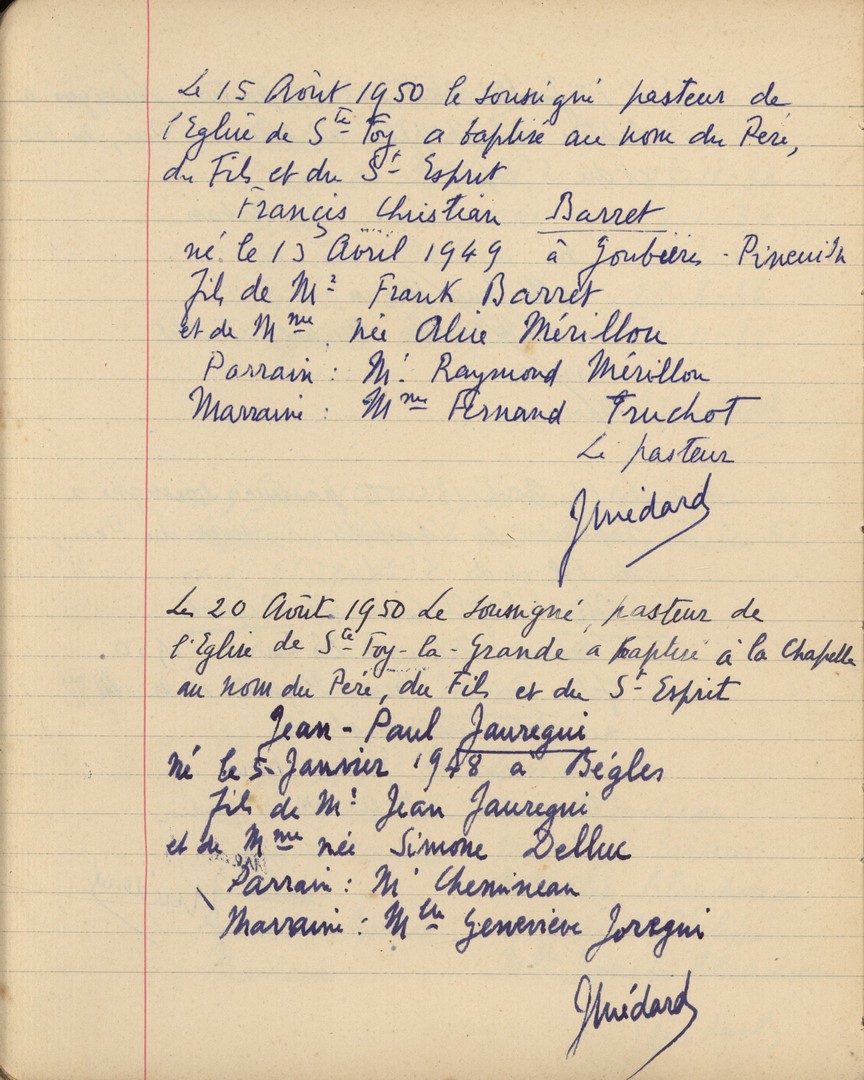 Le 15 Août 1950 le soussigné pasteur de
l'Eglise de Ste Foy a baptisé au nom du Père,
du Fils et du St Esprit
Francis Christian Barret
né le 13 Avril 1949 à Goubières - Pineuilh
fils de Mr Frank Barret
et de Mme née Alice Mérillon
Parrain : Mr Raymond Mérillon
Marraine : Mme Fernand Truchot
Le pasteur
Le 20 Août 1950 Le soussigné, pasteur de
l'Eglise de Ste Foy-la-Grande a baptisé à la Chapelle
au nom du Père, du Fils et du St Esprit
Jean-Paul Jauregui
né le 5 Janvier 1948 à Bégles
fils de Mr Jean Jauregui
et de Mme née Simone Delluc
Parrain : Mr Chemineau
Marraine : Mlle Geneviève Joregui